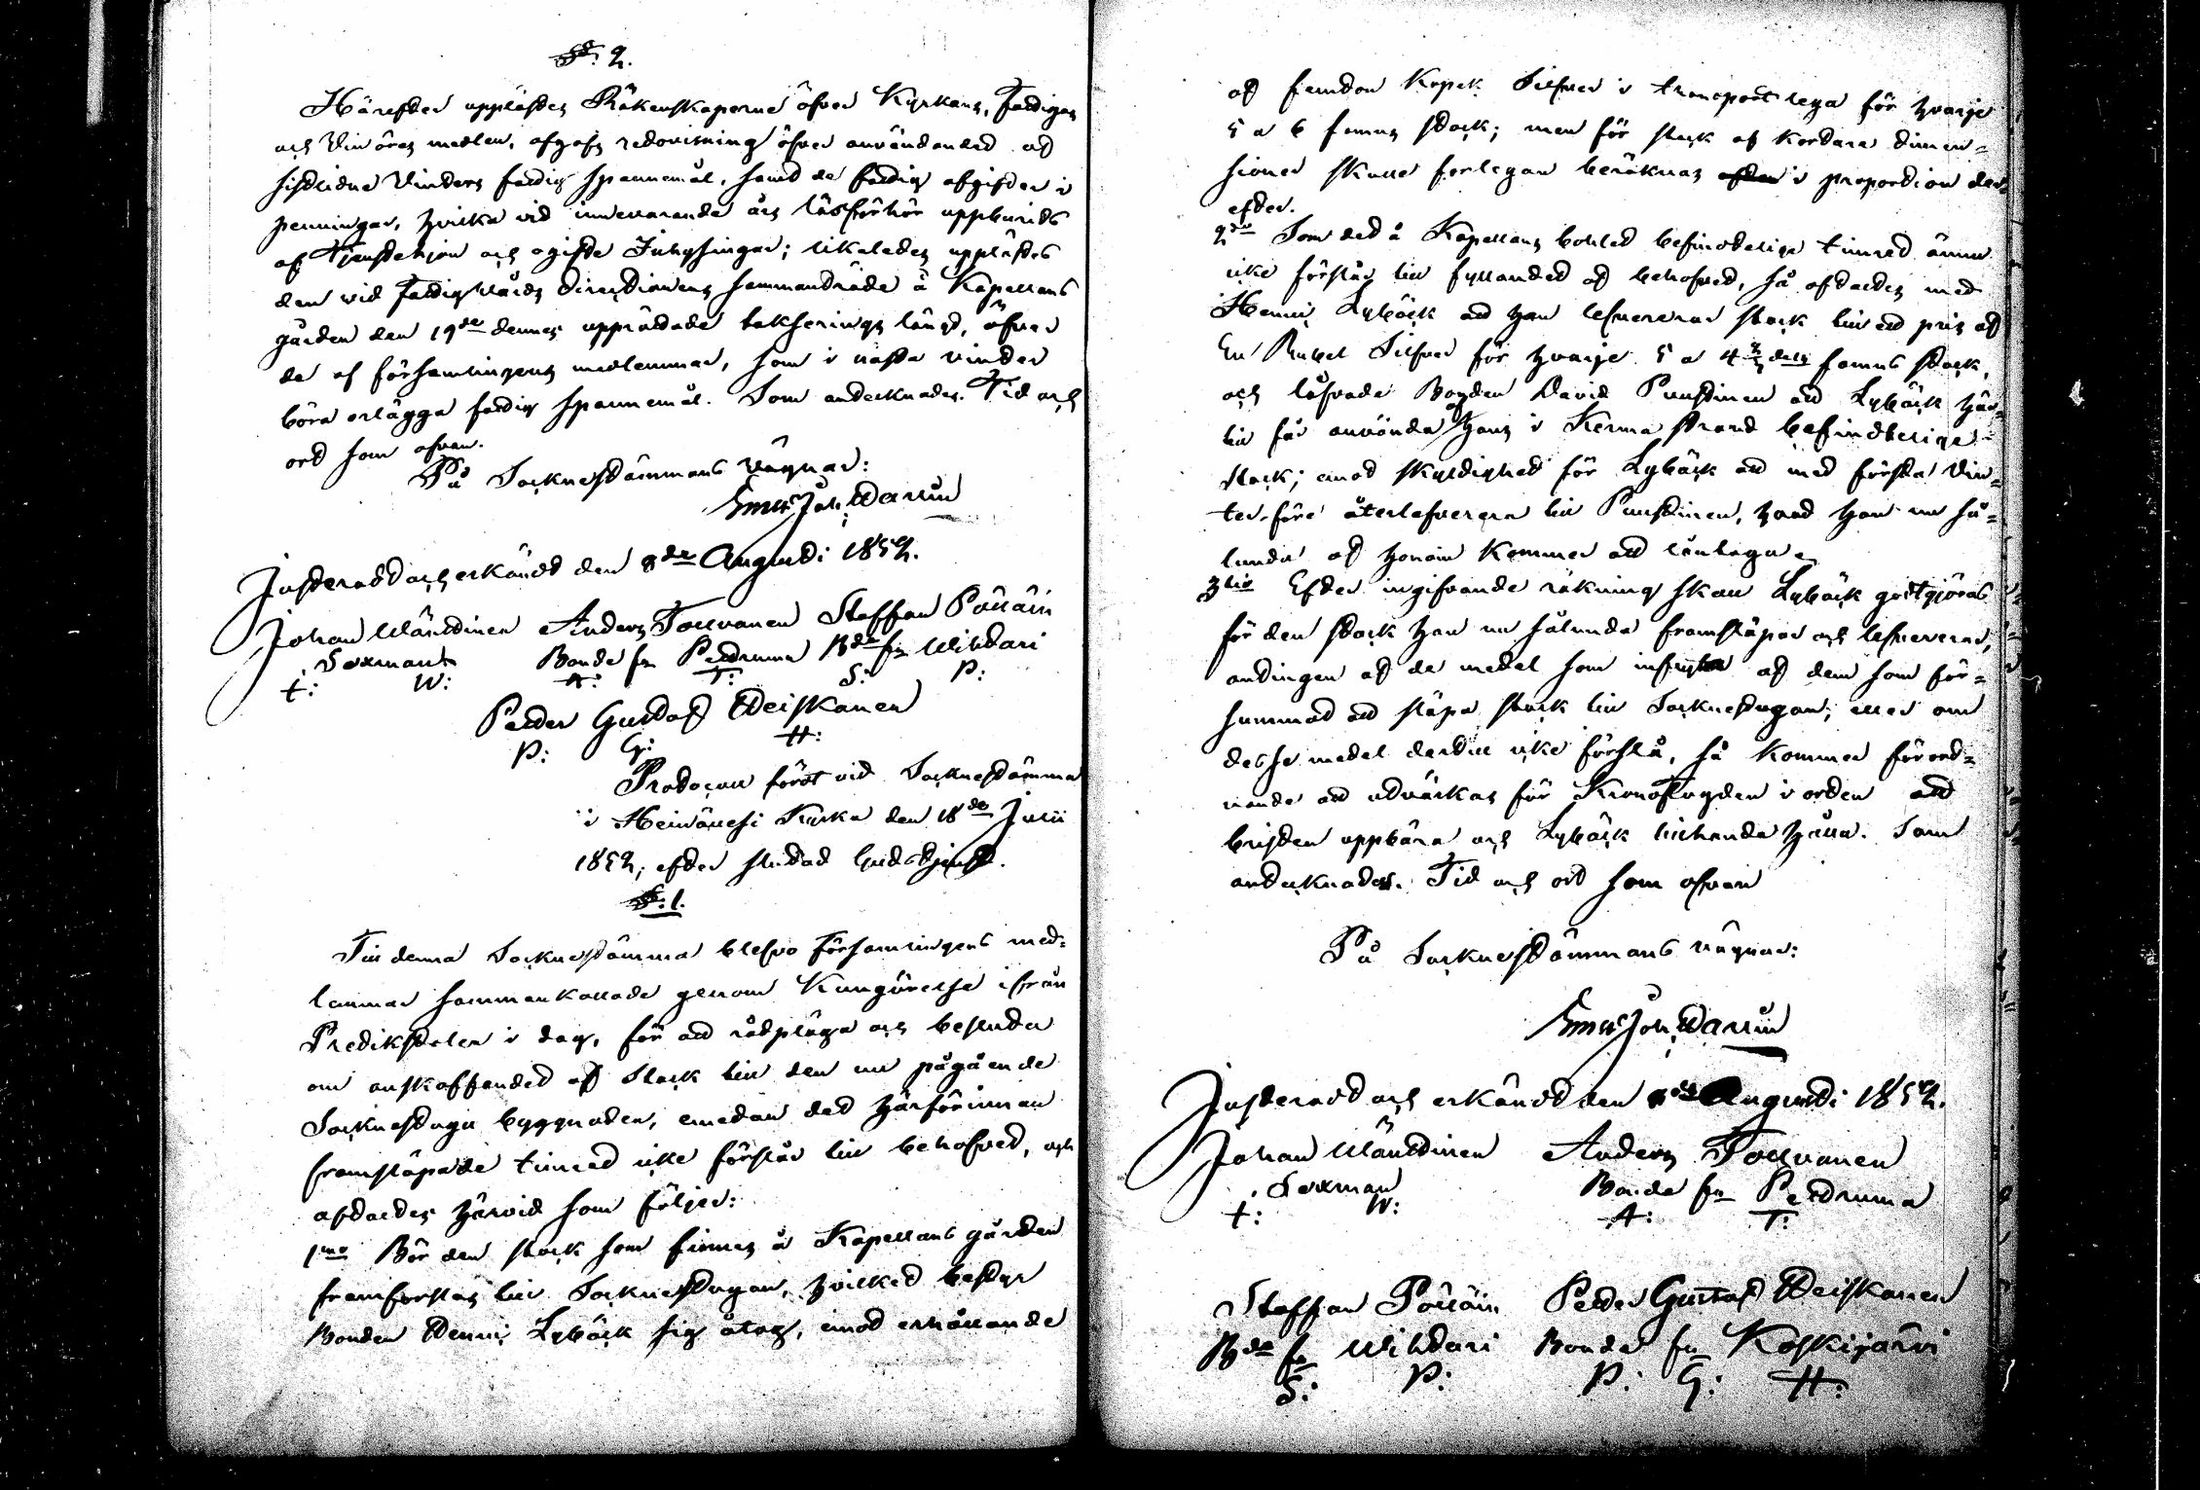 §. 2.
Härefter upplästes Räkenskaperne öfver Kyrkans, Fattigas
och Vinöres medlen, afgafs redovisning öfver användandet af
sistledne Vinters fattig spannemål, samt de fattig afgifter i
penningar, hvilka vid innevarande års läsförhör uppburits
af Tjenstehjon och ogifte Inhysingar; likaledes upplästes
den vid Fattigvårds Directionens sammanträde å Kapellans
gården den 19de dennes upprättade taxerings längd, öfver
de af församlingens medlemmar, som i nästa vinter
böra erlägga fattig spannemål. Som antecknades. Tid och
ort som ofvan.
På Socknestämmans vägnar:
Justeradt och erkändt den 8de Augusti 1852.
Johan Mänttinen Anders Tolvanen Staffan Pölläin
Sexman Bonde fr Petruma Bde fr Wihtari
t: W: A: T: S: P:
Petter Gustaf Heiskanen
P: G: H:
Protocoll fördt vid Socknestämma
i Heinävesi Kyrka den 18de Julii
1852, efter slutad Gudstjenst.
§. 1.
Till denna Socknestämma blefvo Församlingens med-
lemmar sammankallade genom Kungörelse ifrån
Predikstolen i dag, för att rådpläga och besluta
om anskaffandet af stock till den nu pågående
Socknestugu byggnaden, emedan det härförinnan
framsläpade timret icke förslår till behofvet, och
aftaltes härvid som följer:
1mo Bör den stock som finnes å Kapellans gården
framforslas till Socknestugan, hvilket bestyr
Bonden Henric Lybäck sig åtog, emot erhållande
af femton Kopek Silfver i transport lega för hvarje
5 a 6 famns stock; men för stock af kortare dimen-
sioner skulle forlegan beräknas i proportion der-
efter.
2do Som det å Kapellans bohlet befinteliga timret ännu
icke förslår till fyllandet af behofvet, så aftaltes med
Henric Lybäck att han lefvererar stock till ett pris af
En Rubel Silfver för hvarje 5 a 4 ½ dels famns stock,
och låfvade Bonden David Punstinen att Lybäck här-
till får använda hans i Kerma strand befintelige
stock; emot skyldighet för Lybäck att med första Vin-
ter-före återlefverera till Punstinen, hvad han nu så-
lunda af honom kommer att låntaga.
3tio Efter ingifvande räkning skall Lybäck godtgöras
för den stock han nu sålunda framsläpar och lefvererar,
antingen af de medel som influtit af dem som för-
summat att släpa stock till Socknestugan; eller om
desse medel dertill icke förslå, så kommer förord-
nande att utvärkas för Kronofogden i orten att
bristen uppbära och Lybäck tillhanda hålla. Som
antecknades. Tid och ort som ofvan
På Socknestämmans vägnar:
Justeradt och erkändt den 8de Augusti 1852.
Johan Mänttinen Anders Tolvanen
Sexman Bonde fr Petruma
t: W: A: T:
Staffan Pölläin Petter Gustaf Heiskanen
Bde fr Wihtari Bonde fr Koskijärvi
S: P: P: G: H: